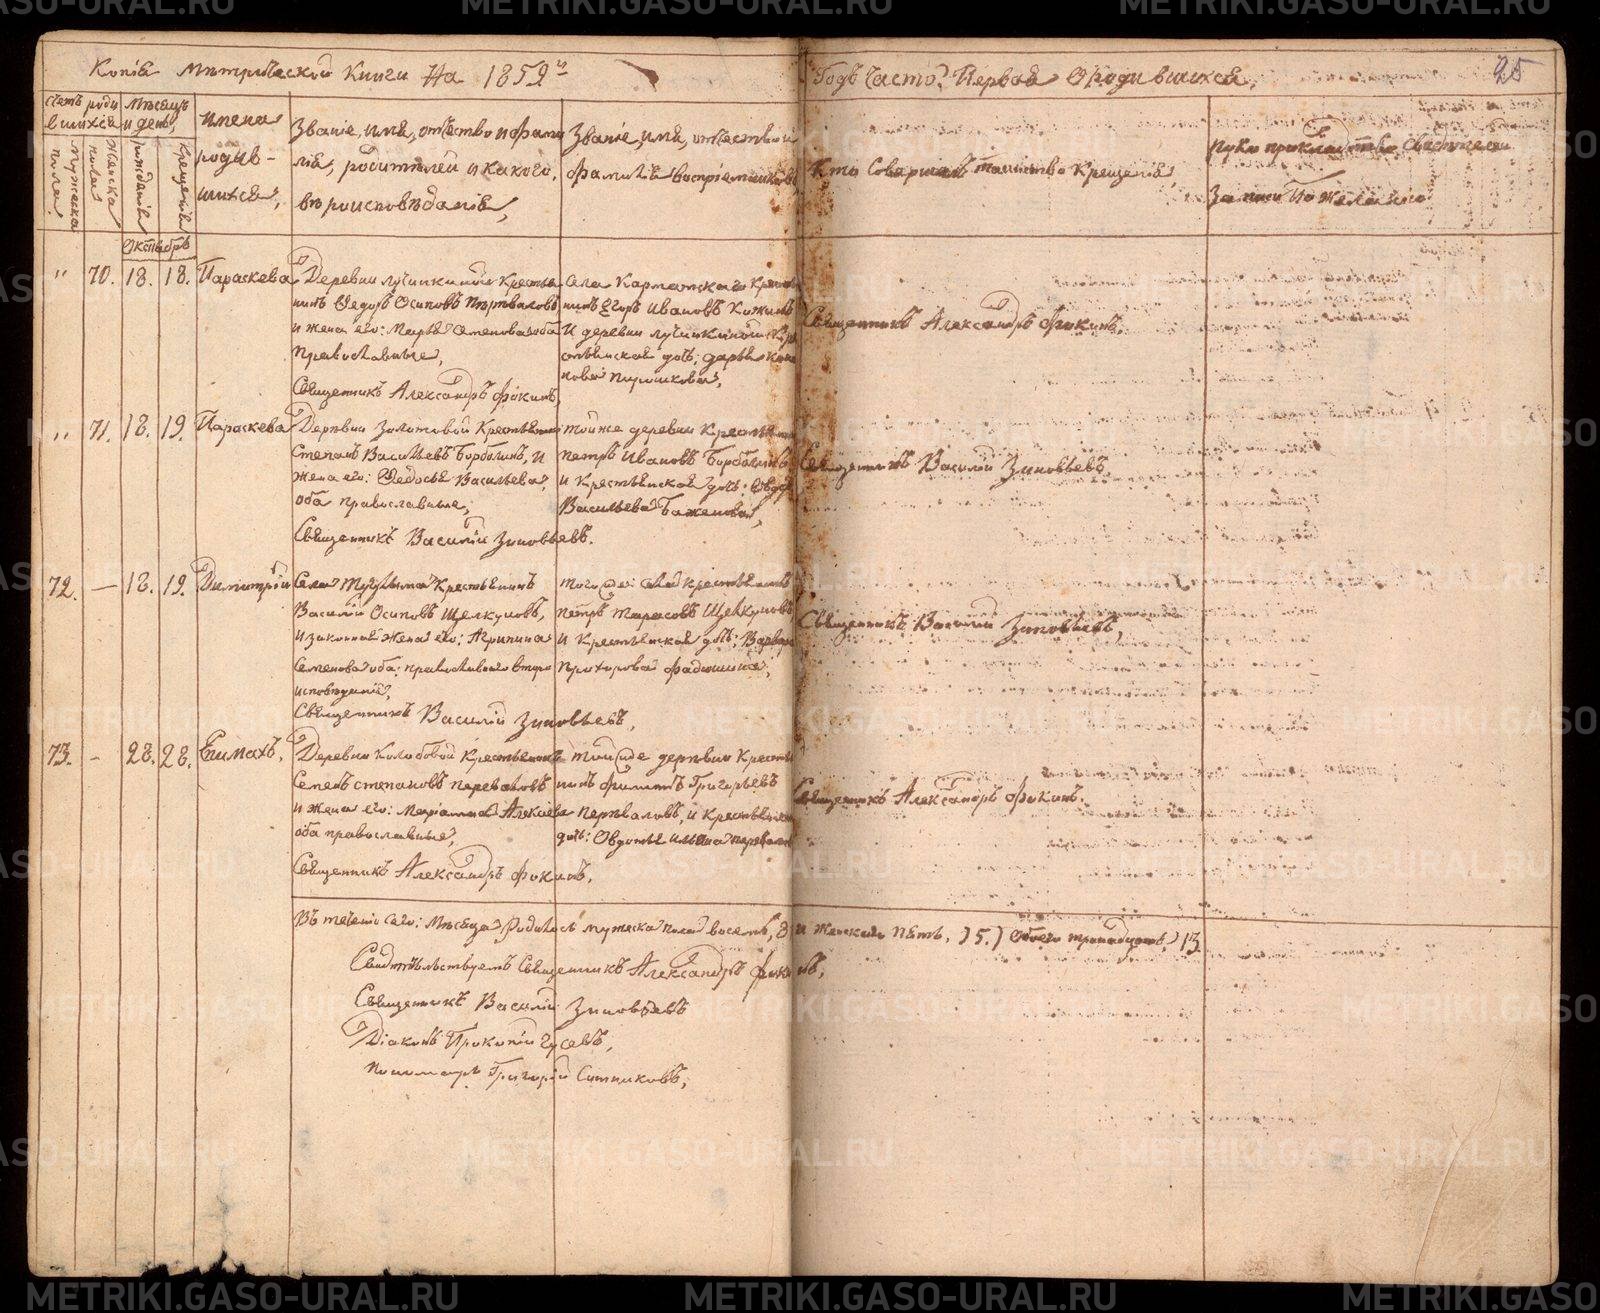 Копія Метрической Книги На 1859й Годъ Часть Первая О родившихся, 25
Счетъ родившихся
Мужеска пола
Женска пола
Месяцъ и день,
рожденія
крещенія
имена родившихся,
Званіе, имя, отчество и фамилія, родителей и какого, вероисповеданія,
Званіе, имя, отчество и фамилія восприемниковъ
Кто Совершалъ таинство Крещенія,
Рукоприкладство свидетелей записи По желанію
Октябрь
" 70. 18. 18. Параскева
Деревни Лучинкиной Крестья
нинъ Федоръ Осиповъ Перваловъ
и жена его: Марья Семенова оба
Православные,
Священникъ Александръ Фокинъ,
Села Кармакскаго Крестья
нинъ Егоръ Ивановъ Кожинъ
И деревни Лучинкиной Кре
стьянская дочь: дарья
нова Пирожкова,
Священникъ Александръ Фокинъ,
" 71. 18. 19. Параскева
Деревни Золотовой Крестьянинъ
Степанъ Васильевъ Борболинъ, И
жена его: Федосья Васильева
оба православные,
Священникъ Василій Зиновьевъ.
тойже деревни Крестьянинъ
петръ Ивановъ Борболинъ
и Крестьянская дочь:
Васильева Баженова,
Священникъ Василій Зиновьевъ,
72. — 18. 19. Димитрій
Села Тугулыма Крестьянинъ
Василій Осиповъ Щелкуновъ,
и законная жена его: Агрипина
Семенова оба: православнаго веро
исповеданія,
Священникъ Василій Зиновьевъ,
того же: села крестьянинъ
петръ тарасовъ Щелкуновъ
и Крестьянская дочь: Варвара
Прохорова Фадюшина,
Священникъ Василій Зиновьевъ,
73. - 28. 28. Епимахъ,
Деревни Колобовой Крестьянинъ
Семенъ степановъ перваловъ
и жена его: Маріамна Алексеева
оба православные,
Священникъ Александръ Фокинъ,
той же деревни Крестья
нинъ Филиппъ Григорьевъ
Перваловъ, и Крестьянская
дочь: Овдотья ильина первалова
Священникъ Александръ Фокинъ,
Въ теченіи сего: Месяца Родилось мужеска пола восемь, 8 и женскаго пять, )5.) Обоего тринадцать, )13
Свидетельствуемъ Священникъ Александръ Фокинъ,
Священникъ Василій Зиновьевъ
Діаконъ Прокопій Гусевъ,
Пономарь Григорій Ситниковъ,
METRIKI.GASO-URAL.RU